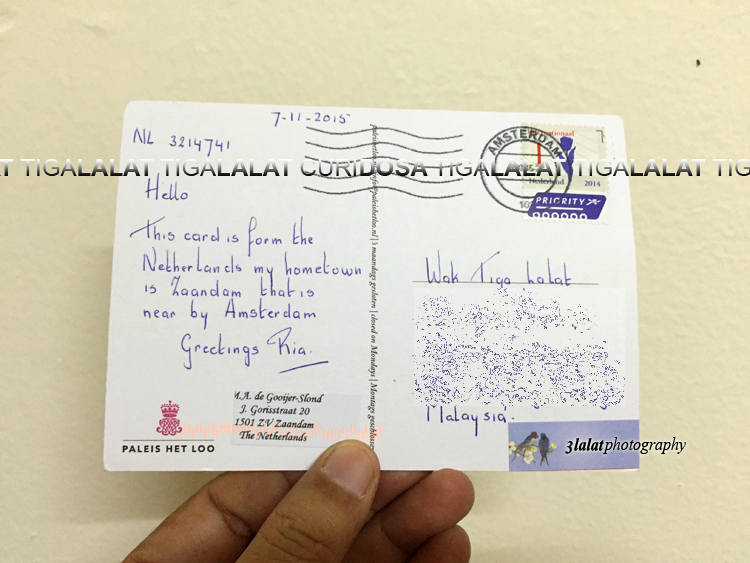 7-11-2015
NL 3214741
TIGALALAT TIGALALAT CURIDOSA TIGALALAT TIGALALAT
Hello
This card is form the
Netherlands my hometown
is Zaandam that is
near by Amsterdam
Greetings Ria.
M.A. de Gooijer-Slond
J. Gorisstraat 20
1501 ZV Zaandam
The Netherlands
PALEIS HET LOO
maandags gesloten | closed on Mondays | Montags geschlossen
AMSTERDAM
1
Nederland 2014
PRIORITY
Wak Tiga Lalat
Malaysia.
3lalatphotography